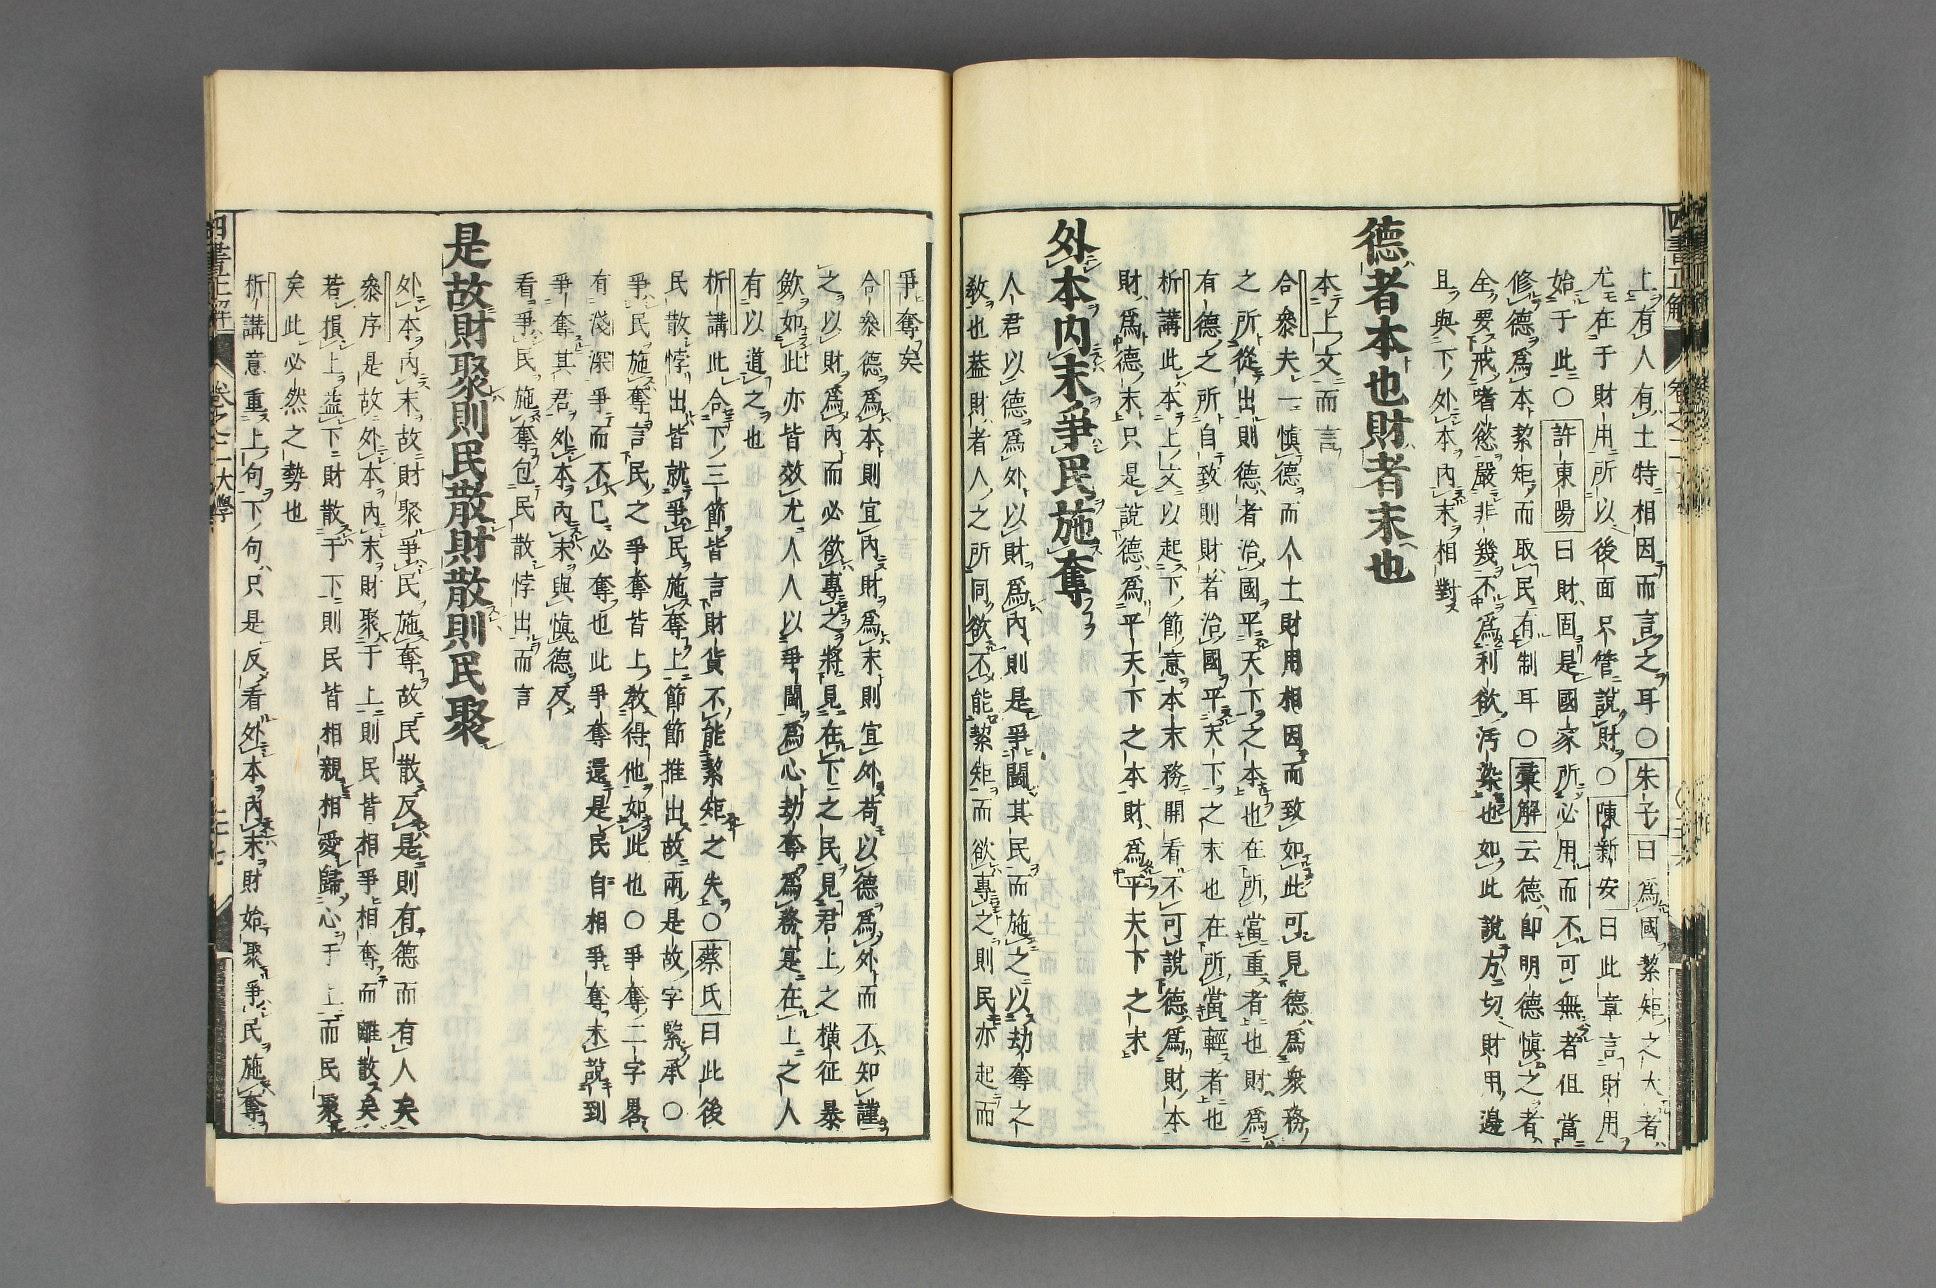 四書正解 卷之二
上有人有土特相因而言之耳○朱子曰爲國絜矩之大者
尤在于財用所以後面只管說財○陳新安曰此章言財用
始于此○許東陽曰財固是國家所必用而不可無者但當
修德爲本絜矩而取民有制耳○彙解云德卽明德愼之者
全要戒嗜慾嚴非幾不爲利欲污染也如此說方切財用邊
且與下外本內末相對
德者本也財者末也
本上文而言
合參夫一愼德而人土財用相因而致如此可見德爲衆務
之所從出則德者治國平天下之本也在所當重者也財爲
有德之所自致則財者治國平天下之末也在所當輕者也
析講此本上文以起下節意本末務開看不可說德爲財本
財爲德末只是說德爲平天下之本財爲平天下之末
外本內末爭民施奪
人君以德爲外以財爲內則是爭鬬其民而施之以劫奪之
敎也蓋財者人之所同欲不能絜矩而欲專之則民亦起而
爭奪矣
合參德爲本則宜內財爲末則宜外苟以德爲外而不知謹
之以財爲內而必欲專之將見在下之民見君上之橫征暴
斂如此亦皆效尤人人以爭鬬爲心劫奪爲務寔在上之人
有以道之也
析講此合下三節皆言財貨不能絜矩之失○蔡氏曰此後
民散悖出皆就爭民施奪上節節推出故兩是故字緊承○
爭民施奪言民之爭奪皆上敎得他如此也○爭奪二字畧
有淺深爭而不已必奪也此爭奪還是民自相爭奪末說到
爭奪其君外本內末與愼德反
看爭民施奪包民散悖出而言
是故財聚則民散財散則民聚
外本內末故財聚爭民施奪故民散反是則有德而有人矣
參序是故外本內末財聚于上則民皆相爭相奪而離散矣
若損上益下財散于下則民皆相親相愛歸心于上而民聚
矣此必然之勢也
析講意重上句下句只是反看外本內末財始聚爭民施奪
四書正解 卷之二 大學 二十七